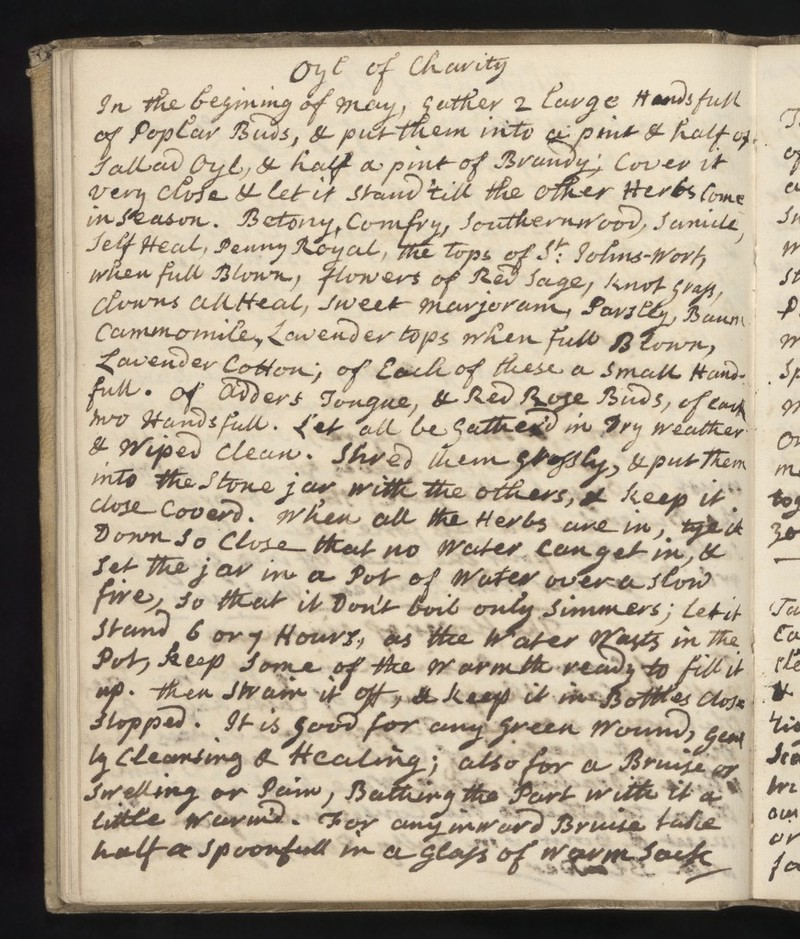 Oyl of Charity
In the begining of may, gather 2 large Handsfull
of Poplar Buds, & put them into a pint & half of
Sallad Oyl, & half a pint of Brandy; Cover it
very Close & let it Stand till the other Herbs Come
in Season. Betony, Comfry, Southernwood, Sanicle,
Self Heal, Penny Royal, the tops of St. Johns-Wort,
when full Blown, flowers of Red Sage, knot grass,
Clowns All Heal, Sweet marjoram, Parsley, Baum
Cammomile, Lavender tops when full Blown,
Lavender Cotton; of Each of these a Small Hand-
full. of Adders Tongue, & Red Rose Buds, of each
two Handsfull. Let all be gather'd in Dry weather
& Wiped Clean. Shred them grossly, & put them
into the Stone jar with the others, & keep it
Close Coverd. When all the Herbs are in, tye it
Down So Close that no Water Can get in, &
Set the jar in a Pot of Water over a slow
fire, So that it Don't boil only Simmers; let it
Stand 6 or 7 Hours, as the Water Wasts in the
Pot, keep Some of the Warmth ready to fill it
up. then Strain it off, & keep it in Bottles Close
Stopped. It is good for any green Wound, gent
ly Cleansing & Healing; also for a Bruise or
Swelling or Pain, Bathing the Part with it a
little Warm'd. For any inward Bruise take
half a Spoonfull in a glass of warm Sack